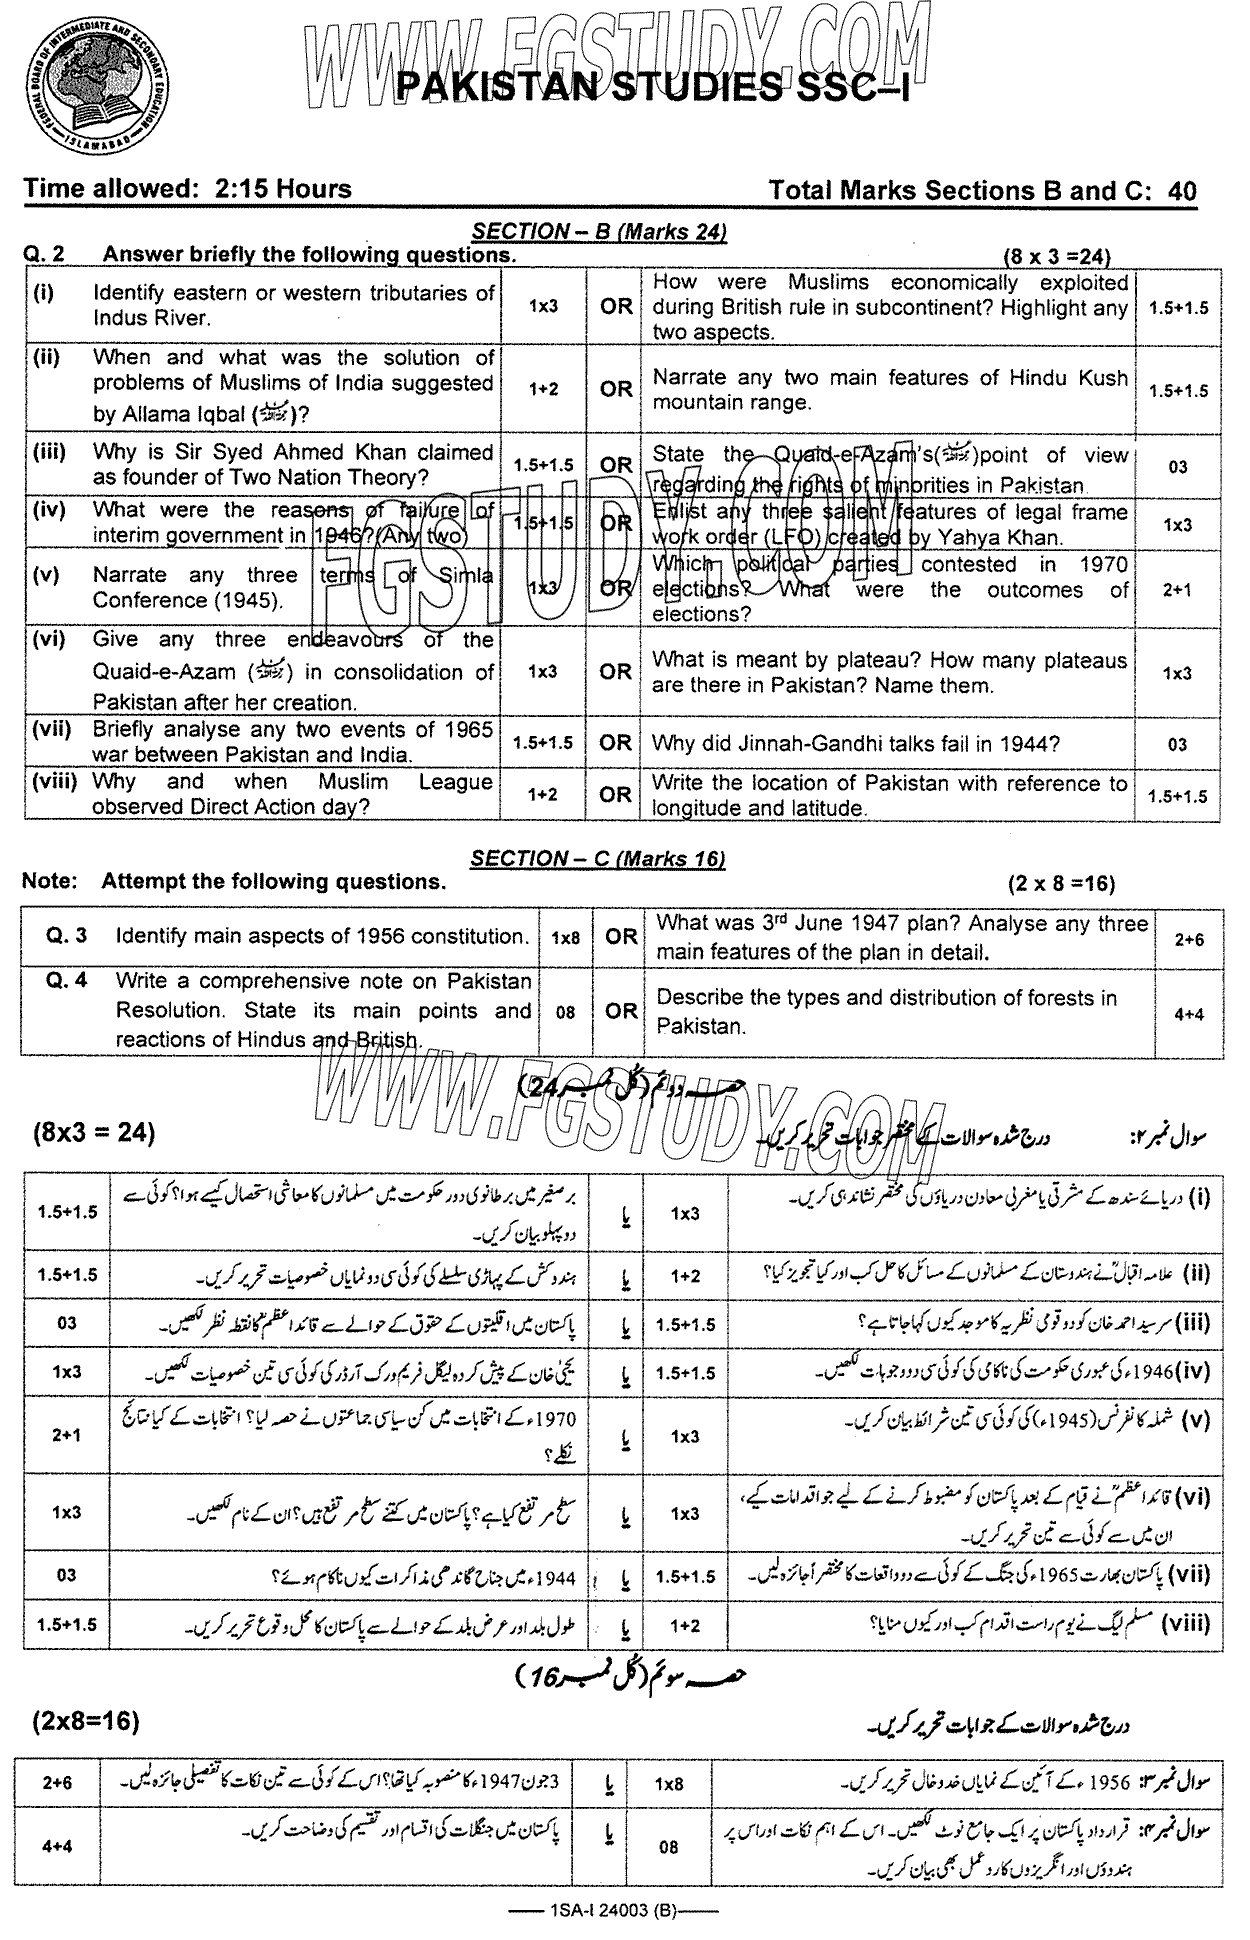 WWW.FGSTUDY.COM
FEDERAL BOARD OF INTERMEDIATE AND SECONDARY EDUCATION
ISLAMABAD
PAKISTAN STUDIES SSC–I
Time allowed: 2:15 Hours
Total Marks Sections B and C: 40
SECTION – B (Marks 24)
Q. 2 Answer briefly the following questions. (8 x 3 =24)
(i) Identify eastern or western tributaries of
Indus River.
1x3
OR
How were Muslims economically exploited
during British rule in subcontinent? Highlight any
two aspects.
1.5+1.5
(ii) When and what was the solution of
problems of Muslims of India suggested
by Allama Iqbal ()?
1+2
OR
Narrate any two main features of Hindu Kush
mountain range.
1.5+1.5
(iii) Why is Sir Syed Ahmed Khan claimed
as founder of Two Nation Theory?
1.5+1.5
OR
State the Quaid-e-Azam's()point of view
regarding the rights of minorities in Pakistan
03
(iv) What were the reasons of failure of
interim government in 1946?(Any two)
1.5+1.5
OR
Enlist any three salient features of legal frame
work order (LFO) created by Yahya Khan.
1x3
(v) Narrate any three terms of Simla
Conference (1945).
1x3
OR
Which political parties contested in 1970
elections? What were the outcomes of
elections?
2+1
(vi) Give any three endeavours of the
Quaid-e-Azam () in consolidation of
Pakistan after her creation.
1x3
OR
What is meant by plateau? How many plateaus
are there in Pakistan? Name them.
1x3
(vii) Briefly analyse any two events of 1965
war between Pakistan and India.
1.5+1.5
OR
Why did Jinnah-Gandhi talks fail in 1944?
03
(viii) Why and when Muslim League
observed Direct Action day?
1+2
OR
Write the location of Pakistan with reference to
longitude and latitude.
1.5+1.5
FGSTUDY.COM
SECTION – C (Marks 16)
Note: Attempt the following questions. (2 x 8 =16)
Q. 3 Identify main aspects of 1956 constitution.
1x8
OR
What was 3rd June 1947 plan? Analyse any three
main features of the plan in detail.
2+6
Q. 4 Write a comprehensive note on Pakistan
Resolution. State its main points and
reactions of Hindus and British.
08
OR
Describe the types and distribution of forests in
Pakistan.
4+4
WWW.FGSTUDY.COM
حصہ دوئم (کُل نمبر 24)
سوال نمبر ۲: درج شدہ سوالات کے مختصر جوابات تحریر کریں۔ (8x3 = 24)
(i) دریائے سندھ کے مشرقی یا مغربی معاون دریاؤں کی مختصر نشاندہی کریں۔
1x3
یا
برصغیر میں برطانوی دور حکومت میں مسلمانوں کا معاشی استحصال کیسے ہوا؟ کوئی سے
دو پہلو بیان کریں۔
1.5+1.5
(ii) علامہ اقبالؒ نے ہندوستان کے مسلمانوں کے مسائل کا حل کب اور کیا تجویز کیا؟
1+2
یا
ہندوکش کے پہاڑی سلسلے کی کوئی سی دو نمایاں خصوصیات تحریر کریں۔
1.5+1.5
(iii) سر سید احمد خان کو دو قومی نظریہ کا موجد کیوں کہا جاتا ہے؟
1.5+1.5
یا
پاکستان میں اقلیتوں کے حقوق کے حوالے سے قائد اعظمؒ کا نقطہ نظر لکھیں۔
03
(iv) 1946ء کی عبوری حکومت کی ناکامی کی کوئی سی دو وجوہات لکھیں۔
1.5+1.5
یا
یحییٰ خان کے پیش کردہ لیگل فریم ورک آرڈر کی کوئی سی تین خصوصیات لکھیں۔
1x3
(v) شملہ کانفرنس (1945ء) کی کوئی سی تین شرائط بیان کریں۔
1x3
یا
1970ء کے انتخابات میں کن سیاسی جماعتوں نے حصہ لیا؟ انتخابات کے کیا نتائج
نکلے؟
2+1
(vi) قائد اعظمؒ نے قیام کے بعد پاکستان کو مضبوط کرنے کے لیے جو اقدامات کیے،
ان میں سے کوئی سے تین تحریر کریں۔
1x3
یا
سطح مرتفع کیا ہے؟ پاکستان میں کتنے سطح مرتفع ہیں؟ ان کے نام لکھیں۔
1x3
(vii) پاکستان بھارت 1965ء کی جنگ کے کوئی سے دو واقعات کا مختصراً جائزہ لیں۔
1.5+1.5
یا
1944ء میں جناح گاندھی مذاکرات کیوں ناکام ہوئے؟
03
(viii) مسلم لیگ نے یوم راست اقدام کب اور کیوں منایا؟
1+2
یا
طول بلد اور عرض بلد کے حوالے سے پاکستان کا محل وقوع تحریر کریں۔
1.5+1.5
حصہ سوئم (کُل نمبر 16)
درج شدہ سوالات کے جوابات تحریر کریں۔ (2x8=16)
سوال نمبر ۳: 1956ء کے آئین کے نمایاں خدوخال تحریر کریں۔
1x8
یا
3 جون 1947ء کا منصوبہ کیا تھا؟ اس کے کوئی سے تین نکات کا تفصیلی جائزہ لیں۔
2+6
سوال نمبر ۴: قرارداد پاکستان پر ایک جامع نوٹ لکھیں۔ اس کے اہم نکات اور اس پر
ہندوؤں اور انگریزوں کا ردعمل بھی بیان کریں۔
08
یا
پاکستان میں جنگلات کی اقسام اور تقسیم کی وضاحت کریں۔
4+4
—— 1SA-I 24003 (B)——